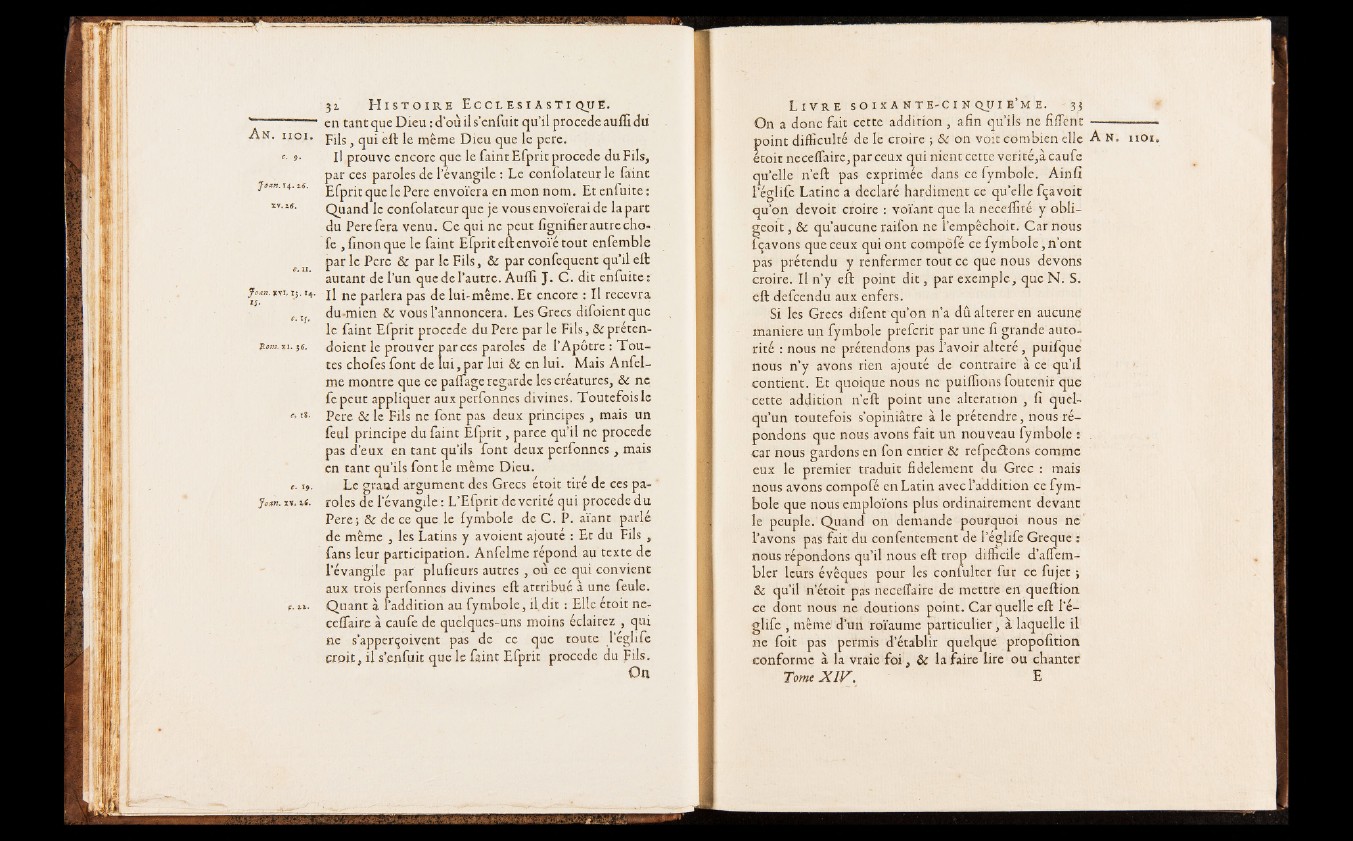 32 HISTOIRE ECCLESIASTIQUE.
en tant que Dieu : d'où il s'enſuit qu'il procede auſſi du
AN. 1101.
Fils, qui eſt le même Dieu que le pere.
c. 9.
Il prouve encore que le ſaint Eſprit procede du Fils,
par ces paroles de l'évangile : Le conſolateur le ſaint
Joan. 14. 26.
Eſprit que le Pere envoïera en mon nom. Et enſuite :
xv. 26.
Quand le conſolateur que je vous envoïerai de la part
du Pere ſera venu. Ce qui ne peut ſignifier autre cho-
ſe, ſinon que le ſaint Eſprit eſt envoïé tout enſemble
par le Pere & par le Fils, & par conſequent qu'il eſt
c. 11.
autant de l'un que de l'autre. Auſſi J. C. dit enſuite :
Joan. xvi. 13. 14.
15.
Il ne parlera pas de lui-même. Et encore : Il recevra
du-mien & vous l'annoncera. Les Grecs diſoient que
c. 15.
le ſaint Eſprit procede du Pere par le Fils, & préten-
Rom. xi. 36.
doient le prouver par ces paroles de l'Apôtre : Tou-
tes choſes ſont de lui, par lui & en lui. Mais Anſel-
me montre que ce paſſage regarde les créatures, & ne
ſe peut appliquer aux perſonnes divines. Toutefois le
c. 18.
Pere & le Fils ne ſont pas deux principes, mais un
ſeul principe du ſaint Eſprit, parce qu'il ne procede
pas d'eux en tant qu'ils ſont deux perſonnes, mais
en tant qu'ils ſont le même Dieu.
c. 19.
Le grand argument des Grecs étoit tiré de ces pa-
Joan. xv. 26.
roles de l'évangile : L'Eſprit de verité qui procede du
Pere ; & de ce que le ſymbole de C. P. aïant parlé
de même, les Latins y avoient ajouté : Et du Fils,
ſans leur participation. Anſelme répond au texte de
l'évangile par pluſieurs autres, où ce qui convient
aux trois perſonnes divines eſt attribué à une ſeule.
c. 22.
Quant à l'addition au ſymbole, il dit : Elle étoit ne-
ceſſaire à cauſe de quelques-uns moins éclairez, qui
ne s'apperçoivent pas de ce que toute l'égliſe
croit, il s'enſuit que le ſaint Eſprit procede du Fils.
On
LIVRE SOIXANTE-CINQUIE'ME. 33
On a donc fait cette addition, afin qu'ils ne fiſſent
point difficulté de le croire ; & on voit combien elle
AN. 1101.
étoit neceſſaire, par ceux qui nient cette verité, à cauſe
qu'elle n'eſt pas exprimée dans ce ſymbole. Ainſi
l'égliſe Latine a declaré hardiment ce qu'elle ſçavoit
qu'on devoit croire : voïant que la neceſſité y obli-
geoit, & qu'aucune raiſon ne l'empêchoit. Car nous
ſçavons que ceux qui ont compoſé ce ſymbole, n'ont
pas prétendu y renfermer tout ce que nous devons
croire. Il n'y eſt point dit, par exemple, que N. S.
eſt deſcendu aux enfers.
Si les Grecs diſent qu'on n'a dû alterer en aucune
maniere un ſymbole preſcrit par une ſi grande auto-
rité : nous ne prétendons pas l'avoir alteré, puiſque
nous n'y avons rien ajouté de contraire à ce qu'il
contient. Et quoique nous ne puiſſions ſoutenir que
cette addition n'eſt point une alteration, ſi quel-
qu'un toutefois s'opiniâtre à le prétendre, nous ré-
pondons que nous avons fait un nouveau ſymbole :
car nous gardons en ſon entier & reſpectons comme
eux le premier traduit fidelement du Grec : mais
nous avons compoſé en Latin avec l'addition ce ſym-
bole que nous emploïons plus ordinairement devant
le peuple. Quand on demande pourquoi nous ne
l'avons pas fait du conſentement de l'égliſe Greque :
nous répondons qu'il nous eſt trop difficile d'aſſem-
bler leurs évêques pour les conſulter ſur ce ſujet ;
& qu'il n'étoit pas neceſſaire de mettre en queſtion
ce dont nous ne doutions point. Car quelle eſt l'é-
gliſe, même d'un roïaume particulier, à laquelle il
ne ſoit pas permis d'établir quelque propoſition
conforme à la vraie foi, & la faire lire ou chanter
Tome XIV. E